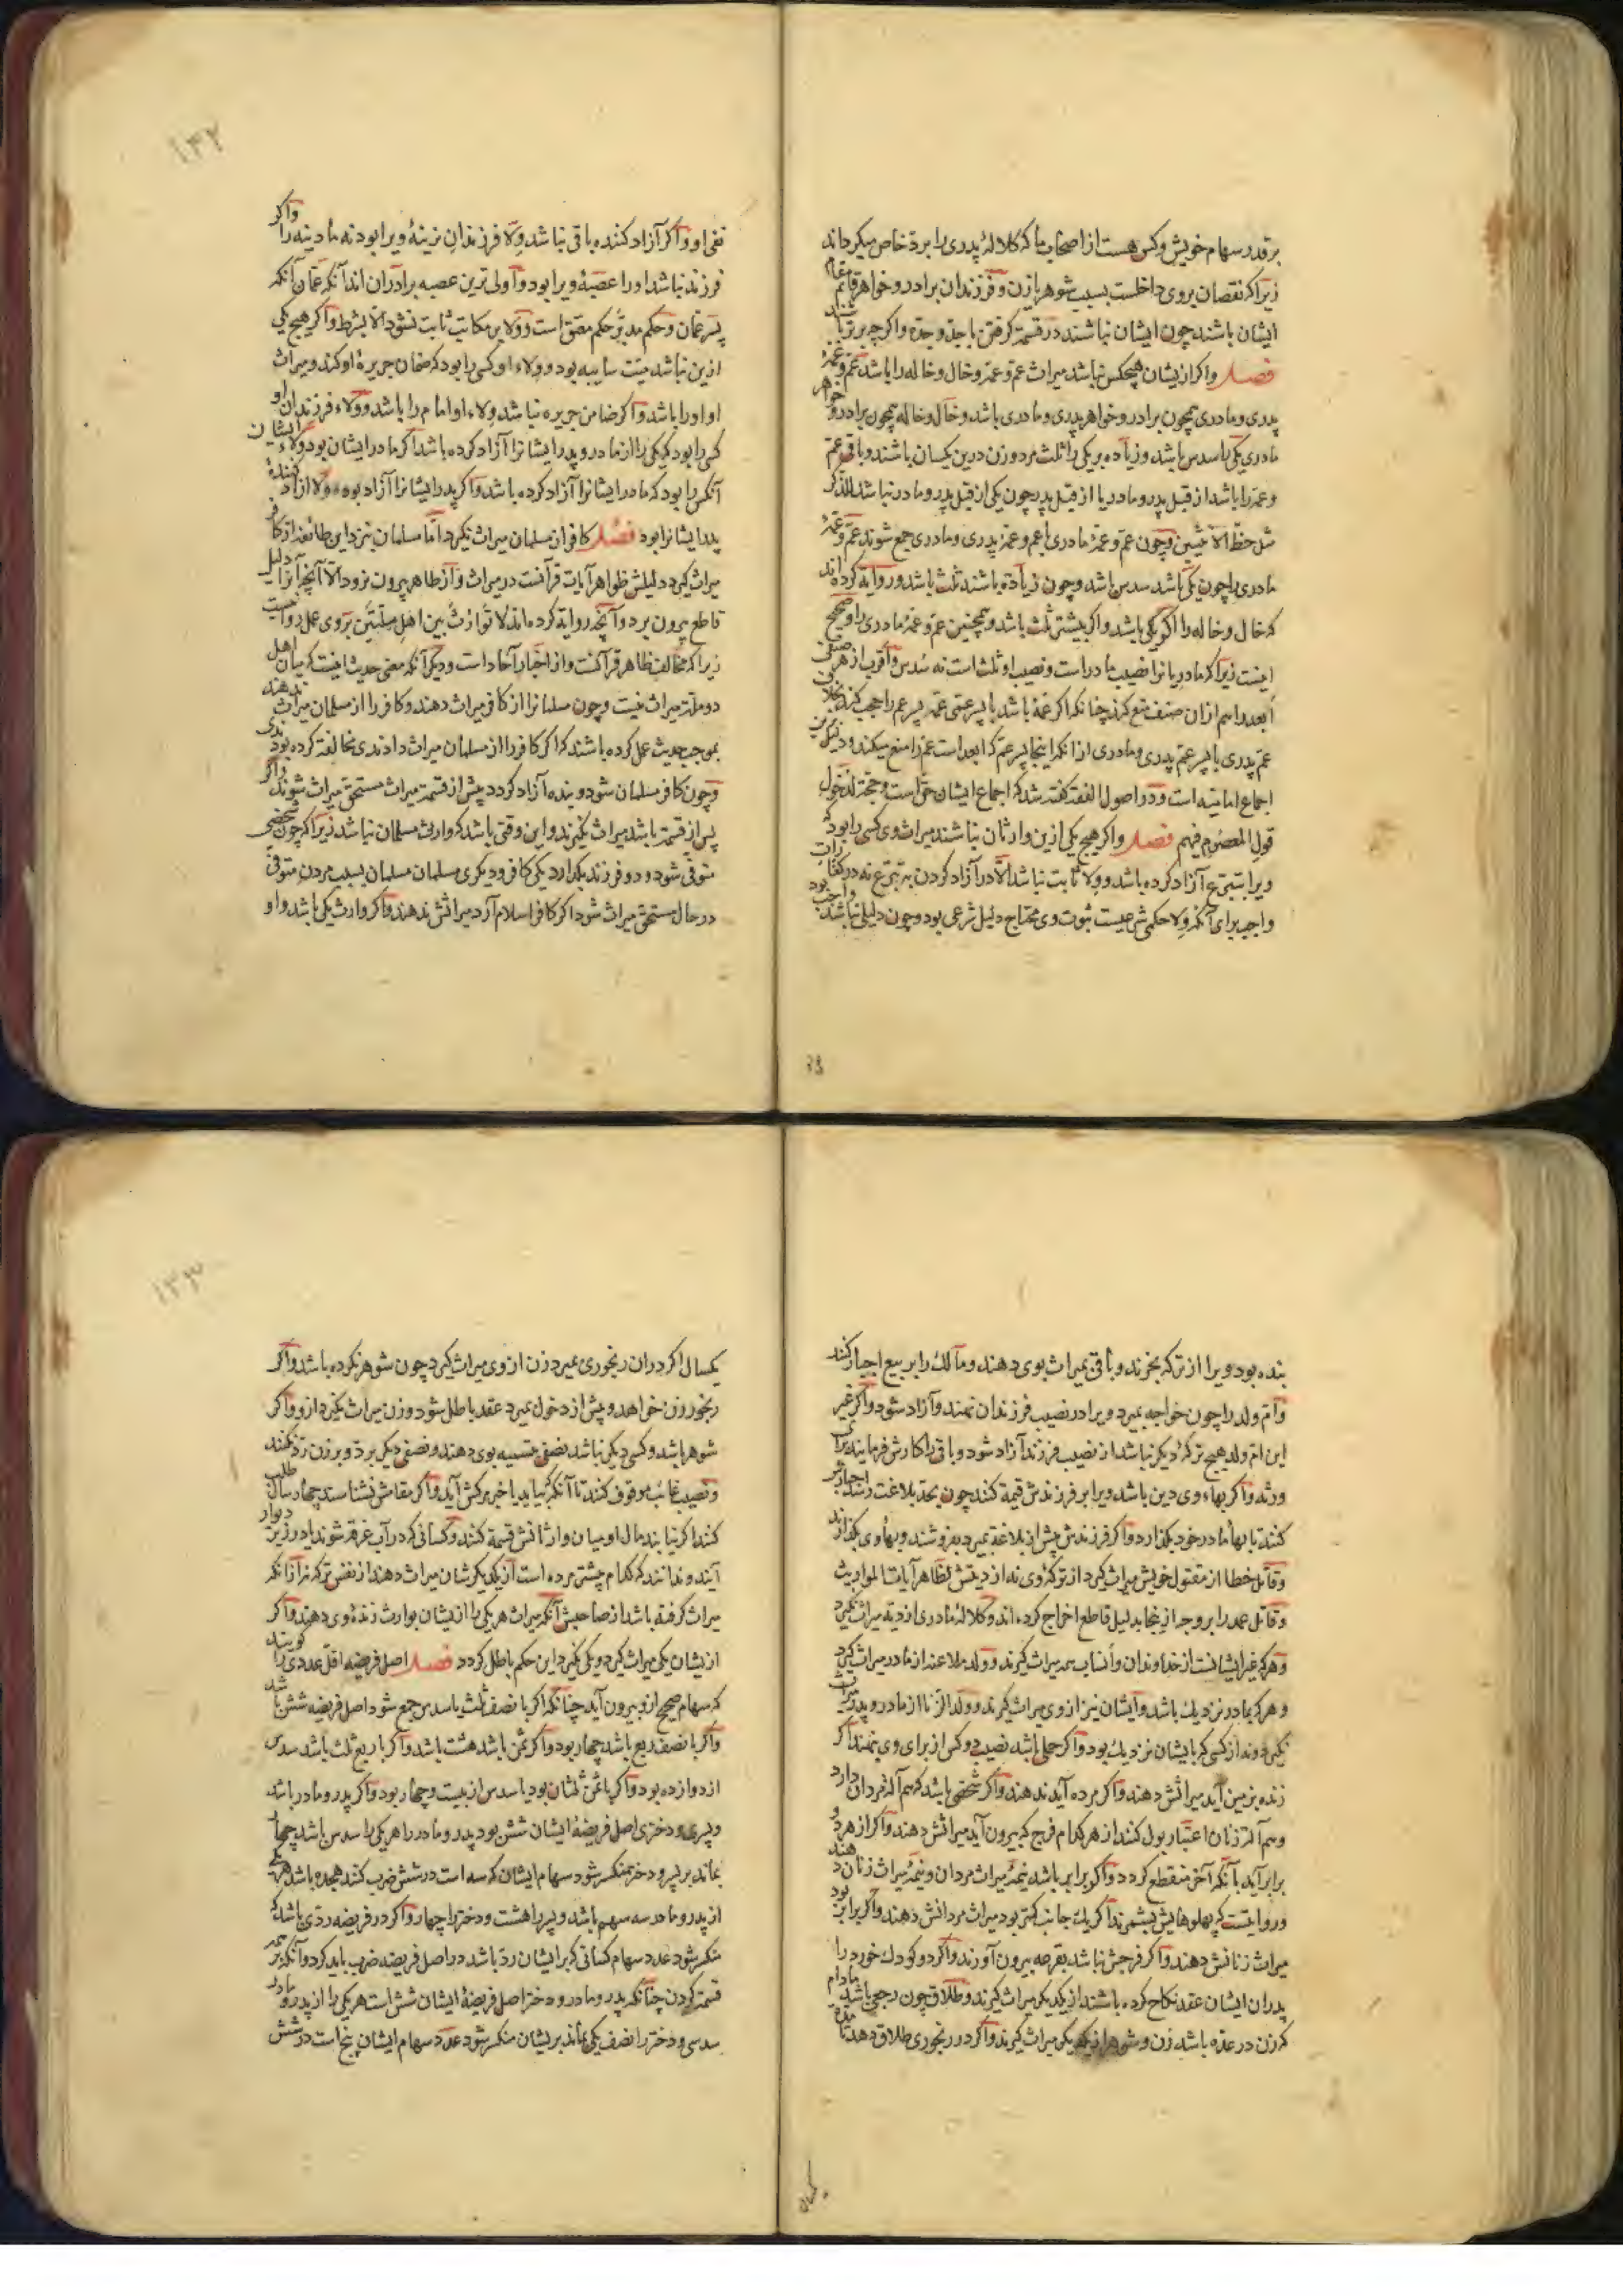 برقدر سهام خویش وکس هست از اصحاب ما که کلالهٔ پدری را برد خاص میکرداند
زیراکه نقصان بر وی داخلست بسبب شوهر یا زن و فرزندان برادر و خواهر قائم مقام
ایشان باشند چون ایشان نباشند در قسمت کرفتن با جد و جده واکرچه برتر باشند
فصل واکر ازیشان هیچکس نباشد میراث عم و عمه و خال و خاله را باشد عم و عمهٔ
پدری و مادری همچون برادر و خواهر پدری و مادری باشد و خال و خاله همچون برادر و خواهر
مادری یکی را سدس باشد و زیاده بر یکی را ثلث مرد و زن درین یکسان باشند و باقی عم
و عمه را باشد از قبل پدر و مادر یا از قبل پدر چون یکی از قبل پدر و مادر نباشد للذکر
مثل حظ الانثیین و چون عم و عمهٔ مادری با عم و عمهٔ پدری و مادری جمع شوند عم و عمهٔ
مادری را چون یکی باشد سدس باشد و چون زیاده باشند ثلث باشد و روایة کرده‌اند
که خال و خاله را اکر یکی باشد واکر بیشتر ثلث باشد و همچنین عم و عمهٔ مادری را و صحیح
اینست زیراکه مادریانرا نصیب مادر است و نصیب او ثلث است نه سدس و اقرب از هر صنفی
ابعد را هم ازان صنف منع کند چنانکه اکر عمه باشد با پسر عمی عمه پسر عم را حجب کند بخلاف
عم پدری با پسر عم پدری و مادری از انکه اینجا پسر عم که ابعد است عم را منع میکند و دلیل برین
اجماع امامیه است و در اصول الفقه کفته شد که اجماع ایشان حق است و حجة لدخول
قول المعصوم فیهم فصل واکر هیچ یکی ازین وارثان نباشند میراث وی کسی را بود که
ویرا بتبرع آزاد کرده باشد و ولا ثابت نباشد الا در آزاد کردن بتبرع نه در کفارات
واجب برای آنکه ولا حکمی شرعیست ثبوت وی محتاج دلیل شرعی بود و چون دلیلی نباشد واجب بود
۱۳۲
نفی او واکر آزادکننده باقی نباشد ولا فرزندان نرینهٔ ویرا بود نه مادینه را واکر
فرزند نباشد او را عصبهٔ ویرا بود و اولی ترین عصبه برادران اند آنکه عمان آنکه
پسر عمان و حکم مدبر حکم معتق است و ولا بر مکاتب ثابت نشود الا بشرط واکر هیچ یکی
ازین نباشد میت سایبه بود و ولاء او کسی را بود که ضمان جریرهٔ او کند و میراث
او او را باشد واکر ضامن جریره نباشد ولاء او امام را باشد و ولاء فرزندان او
کسی را بود که یکی را از مادر و پدر ایشانرا آزاد کرده باشد اکر مادر ایشان بود ولاء ایشان
آنکس را بود که مادر ایشانرا آزاد کرده باشد واکر پدر ایشانرا آزاد بود ولا آزاد کنندهٔ
پدر ایشانرا بود فصل کافر از مسلمان میراث نکیرد اما مسلمان بنزد این طائفه از کافر
میراث کیرد دلیلش ظواهر آیات قرآنست در میراث و از ظاهر بیرون نرود الا آنچه آنرا دلیل
قاطع بیرون برد و آنچه روایة کرده‌اند لا توارث بین اهل ملتین بر وی عمل روا نیست
زیراکه مخالف ظاهر قرآنست و از اخبار آحاد است و دیکر آنکه معنی حدیث اینست که میان اهل
دو ملة میراث نیست و چون مسلمانرا از کافر میراث دهند و کافر را از مسلمان میراث ندهند
بموجب حدیث عمل کرده باشند که اکر کافر را از مسلمان میراث دادندی مخالفة کرده بودندی
و چون کافر مسلمان شود و بنده آزاد کردد پیش از قسمة میراث مستحق میراث شوند واکر
پس از قسمة باشد میراث نکیرند و این وقتی باشد که وارث مسلمان نباشد زیراکه چون شخصی
متوفی شود و دو فرزند بکذارد یکی کافر و دیکری مسلمان مسلمان بسبب مردن متوفی
در حال مستحق میراث شود اکر کافر اسلام آرد میراثش ندهند واکر وارث یکی باشد و او
بنده بود ویرا از ترکه بخرند و باقی میراث بوی دهند و مالک را بر بیع اجبار کنند
وام ولد را چون خواجه بمیرد ویرا در نصیب فرزندان نهند و آزاد شود واکر غیر
این ام ولد هیچ ترکهٔ دیکر نباشد از نصیب فرزند آزاد شود و باقی را کارش فرمایند برای
ورثه واکر بهاء وی دین باشد ویرا بر فرزندش قیمة کنند چون بحد بلاغت رسد اجبارش
کنند تا بهاء مادر خود بکذارد واکر فرزندش پیش از بلاغة بمیرد بفروشند و بهاء وی بکذارند
وقاتل خطا از مقتول خویش میراث کیرد از ترکهٔ وی نه از دیتش لظاهر آیات المواریث
وقاتل عمد را بر وجه ازینجا بدلیل قاطع اخراج کرده‌اند و کلالهٔ مادری از دیة میراث نکیرد
وهرکه غیر ایشانست از خداوندان و انساب همه میراث کیرند و ولد ملاعنه از مادر میراث کیرد
و هرکه بمادر نزدیک باشد و ایشان نیز از وی میراث کیرند و ولد الزنا از مادر و پدر میراث
نکیرد و نه از کسی که بایشان نزدیک بود واکر حملی باشد نصیب دو کس از برای وی بنهند اکر
زنده بزمین آید میراثش دهند واکر مرده آید ندهند واکر شخصی باشد که هم آلة مردان دارد
وهم آلة زنان اعتبار بول کنند از هرکدام فرج که بیرون آید میراثش دهند واکر از هر دو
برابر آید بآنکه آخر منقطع کردد واکر برابر باشد نیمهٔ میراث مردان و نیمهٔ میراث زنان دهند
و روایتست که پهلوهایش بشمرند اکر یک جانب کمتر بود میراث مردانش دهند واکر برابر بود
میراث زنانش دهند واکر فرجش نباشد بقرعه بیرون آورند واکر دو کودک خورد را
پدران ایشان عقد نکاح کرده باشند از یکدیکر میراث کیرند و طلاق چون رجعی باشد مادام
که زن در عده باشد زن و شوهر از یکدیکر میراث کیرند واکر در رنجوری طلاق دهد تا مدة
۱۳۳
یکسال اکر دران رنجوری بمیرد زن از وی میراث کیرد چون شوهر نکرده باشد واکر
رنجور زن خواهد و پیش از دخول بمیرد عقد باطل شود و زن میراث نکیرد ازو واکر
شوهر باشد و کسی دیکر نباشد نصفی بتسمیه بوی دهند و نصفی دیکر برد و بر زن رد نکنند
و نصیب غائب موقوف کنند تا آنکه که بیاید یا خبر مرکش آید واکر مقامش نشناسند چهار سال طلب
کنند اکر نیابند مال او میان وارثانش قسمة کنند و کسانی که در آب غرقه شوند یا در زیر دیوار
آیند و ندانند که کدام پیشتر مرده است از یکدیکرشان میراث دهند از نفس ترکه نه از آنکه
میراث کرفته باشد از صاحبش آنکه میراث هر یکی را ازیشان بوارث زندهٔ وی دهند واکر
ازیشان یکی میراث کیرد و یکی نکیرد این حکم باطل کردد فصل اصل فریضه اقل عددی را کویند
که سهام صحیح ازو بیرون آید چنانکه اکر با نصف ثلث یا سدس جمع شود اصل فریضه شش باشد
واکر با نصف ربع باشد چهار بود واکر ثمن باشد هشت باشد واکر با ربع ثلث باشد سدس
از دوازده بود واکر با ثمن ثلثان بود یا سدس از بیست و چهار بود واکر پدر و مادر باشد
و پسری و دختری اصل فریضهٔ ایشان شش بود پدر و مادر را هر یکی را سدس باشد چهار
بماند بر پسر و دختر منکسر شود سهام ایشان که سه است در شش ضرب کنند هجده باشد هر یکی
از پدر و مادر سه سهم باشد و پسر را هشت و دختر را چهار واکر در فریضه ردی باشد که
منکسر شود عدد سهام کسانی که بر ایشان رد باشد در اصل فریضه ضرب باید کرد و آنکه بر همه
قسمة کردن چنانکه پدر و مادر و دختر اصل فریضهٔ ایشان شش است هر یکی را از پدر و مادر
سدسی و دختر را نصف یکی بماند بریشان منکسر شود عدد سهام ایشان پنج است در شش